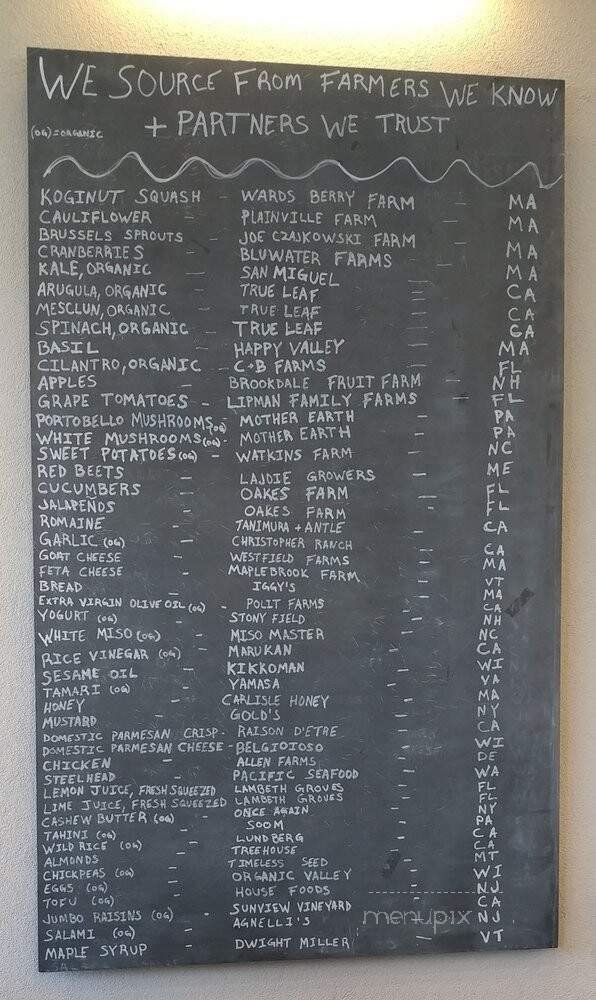 WE SOURCE FROM FARMERS WE KNOW
+ PARTNERS WE TRUST
(OG)=ORGANIC
KOGINUT SQUASH - WARDS BERRY FARM - MA
CAULIFLOWER - PLAINVILLE FARM - MA
BRUSSELS SPROUTS - JOE CZAJKOWSKI FARM - MA
CRANBERRIES - BLUWATER FARMS - MA
KALE, ORGANIC - SAN MIGUEL
ARUGULA, ORGANIC - TRUE LEAF - CA
MESCLUN, ORGANIC - TRUE LEAF - CA
SPINACH, ORGANIC - TRUE LEAF - CA
BASIL - HAPPY VALLEY - MA
CILANTRO, ORGANIC - C+B FARMS - FL
APPLES - BROOKDALE FRUIT FARM - NH
GRAPE TOMATOES - LIPMAN FAMILY FARMS - FL
PORTOBELLO MUSHROOMS (OG) - MOTHER EARTH - PA
WHITE MUSHROOMS (OG) - MOTHER EARTH - PA
SWEET POTATOES (OG) - WATKINS FARM - NC
RED BEETS - LAJOIE GROWERS - ME
CUCUMBERS - OAKES FARM - FL
JALAPEÑOS - OAKES FARM - FL
ROMAINE - TANIMURA + ANTLE - CA
GARLIC (OG) - CHRISTOPHER RANCH - CA
GOAT CHEESE - WESTFIELD FARMS - MA
FETA CHEESE - MAPLEBROOK FARM - VT
BREAD - IGGY'S - MA
EXTRA VIRGIN OLIVE OIL (OG) - POLIT FARMS - CA
YOGURT (OG) - STONY FIELD - NH
WHITE MISO (OG) - MISO MASTER - NC
RICE VINEGAR (OG) - MARUKAN - CA
SESAME OIL - KIKKOMAN - WI
TAMARI (OG) - YAMASA - VA
HONEY - CARLISLE HONEY - MA
MUSTARD - GOLD'S - NY
DOMESTIC PARMESAN CRISP - RAISON D'ETRE - CA
DOMESTIC PARMESAN CHEESE - BELGIOIOSO - WI
CHICKEN - ALLEN FARMS - DE
STEELHEAD - PACIFIC SEAFOOD - WA
LEMON JUICE, FRESH SQUEEZED - LAMBETH GROVES - FL
LIME JUICE, FRESH SQUEEZED - LAMBETH GROVES - FL
CASHEW BUTTER (OG) - ONCE AGAIN - NY
TAHINI (OG) - SOOM - PA
WILD RICE (OG) - LUNDBERG - CA
ALMONDS - TREEHOUSE - CA
CHICKPEAS (OG) - TIMELESS SEED - MT
EGGS (OG) - ORGANIC VALLEY - WI
TOFU (OG) - HOUSE FOODS - NJ
JUMBO RAISINS (OG) - SUNVIEW VINEYARD - CA
SALAMI (OG) - AGNELLI'S - NJ
MAPLE SYRUP - DWIGHT MILLER - VT
menupix